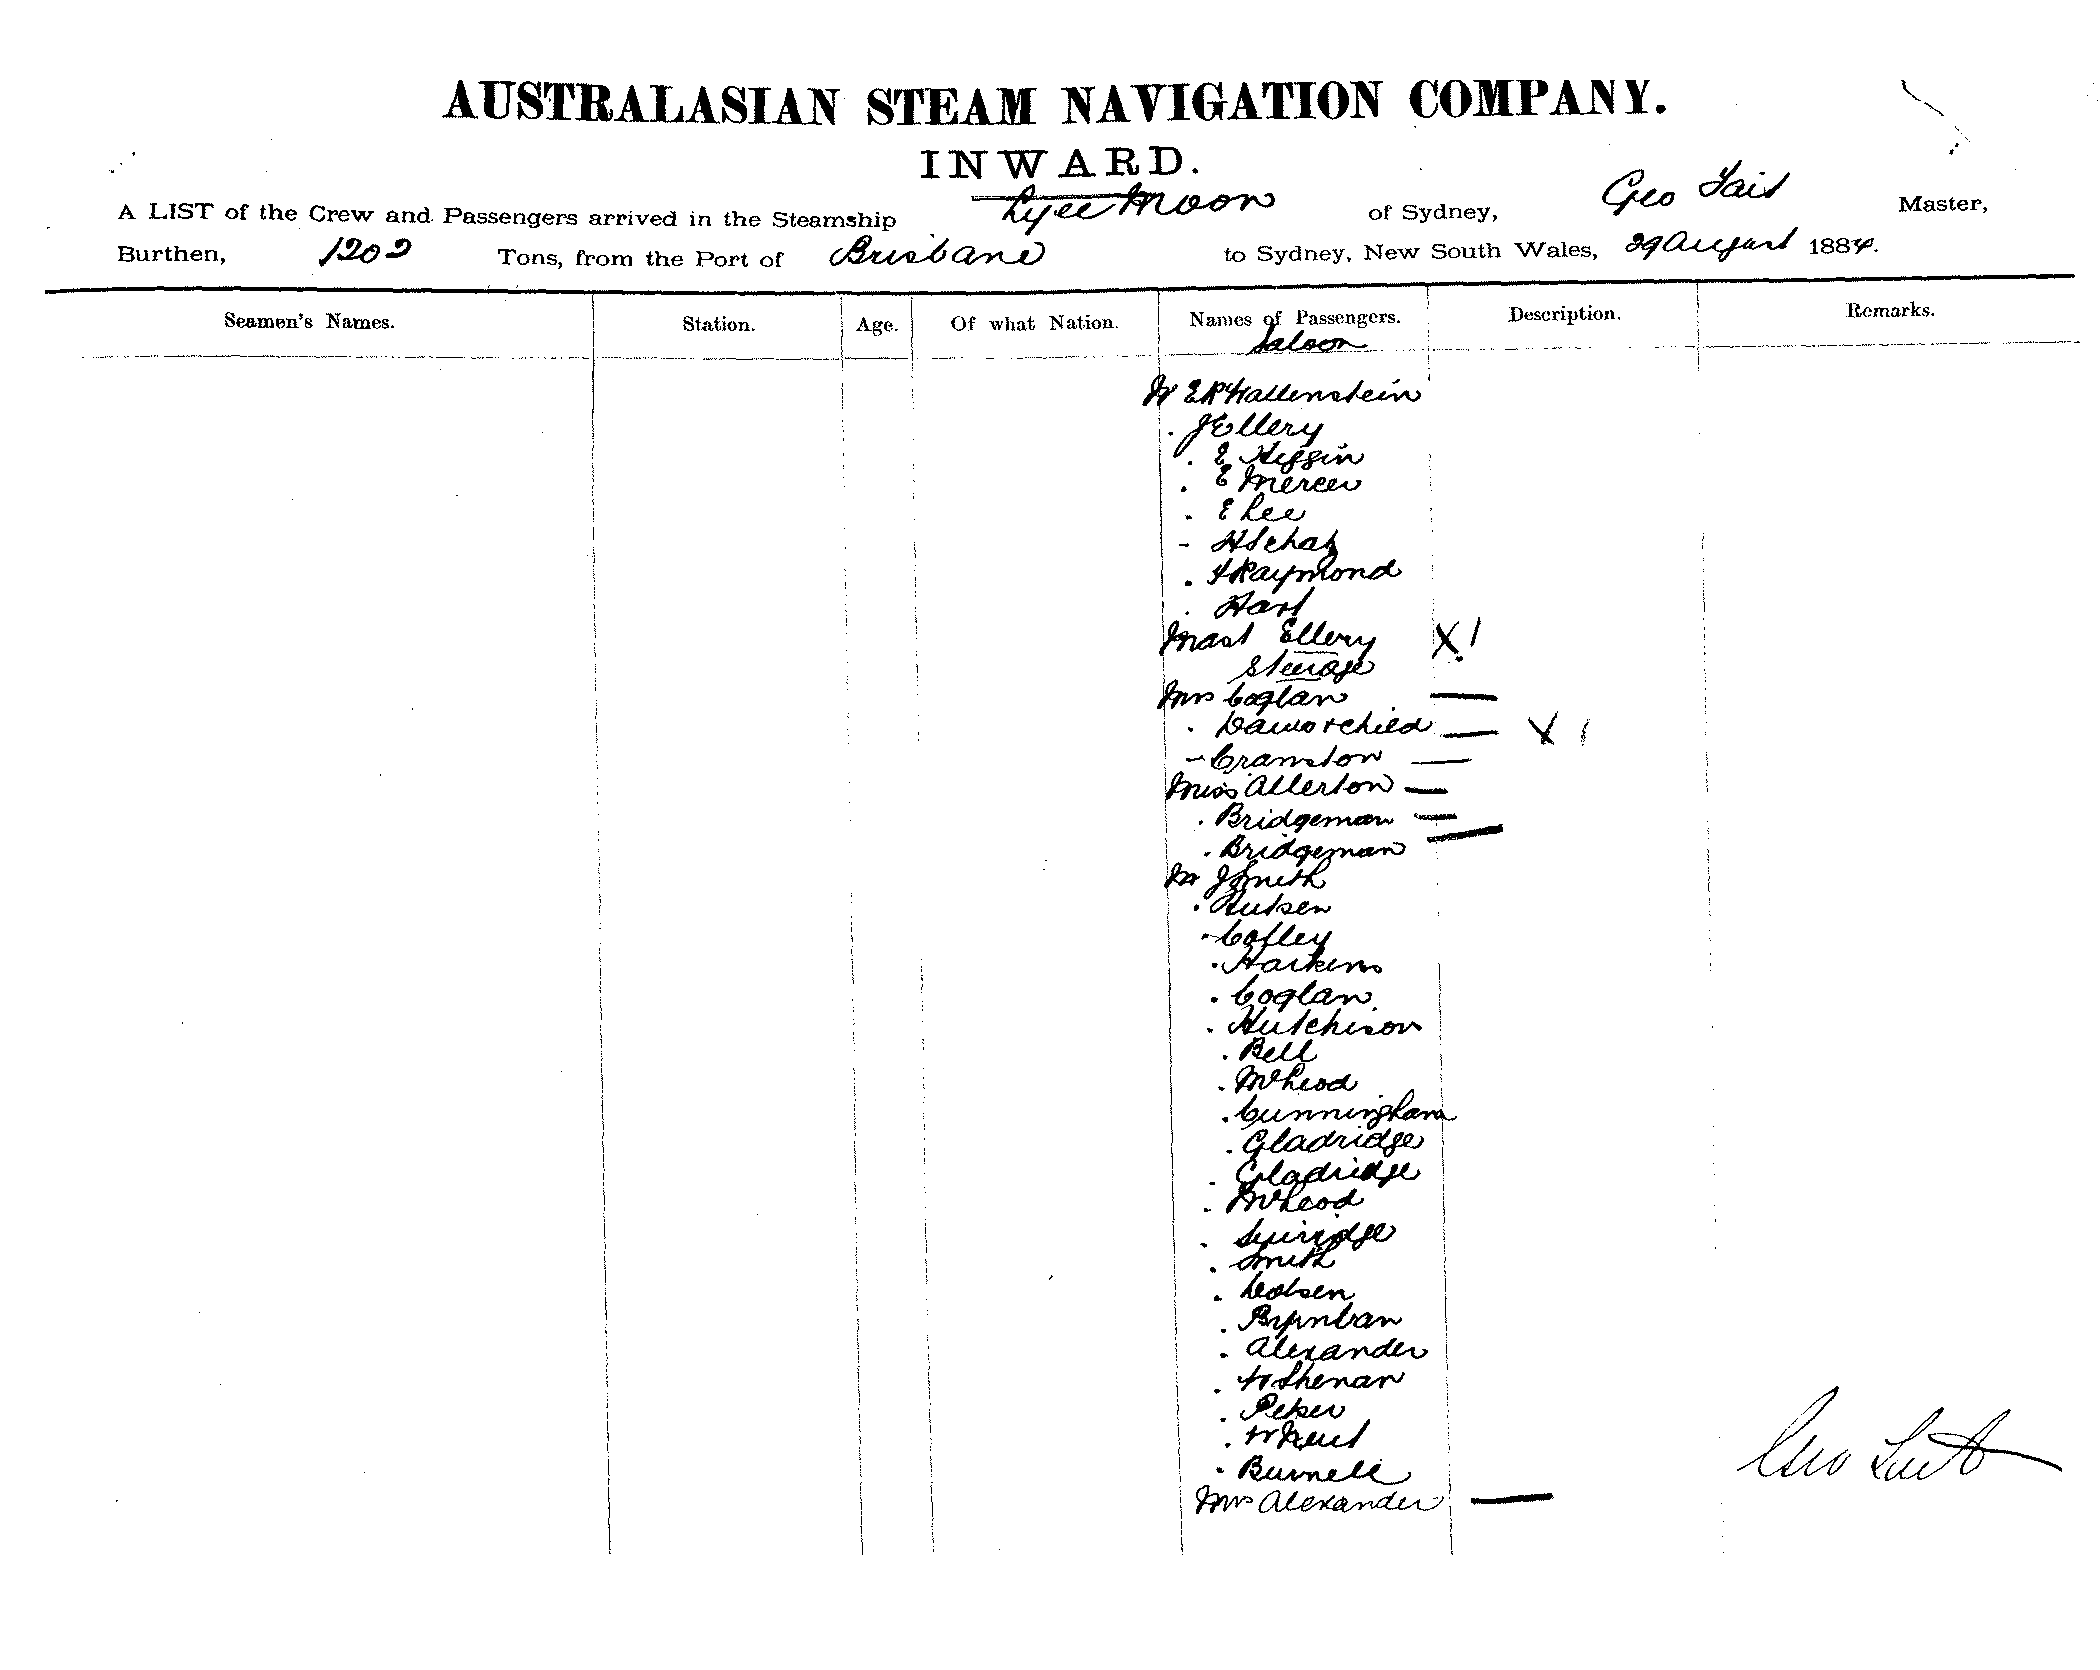 AUSTRALASIAN STEAM NAVIGATION COMPANY.
INWARD.
A LIST of the Crew and Passengers arrived in the Steamship Lyee Moon of Sydney, Geo Tait Master,
Burthen, 1202 Tons, from the Port of Brisbane to Sydney, New South Wales, 29 August 1884.
Seamen's Names. Station. Age. Of what Nation. Names of Passengers. Description. Remarks.
Saloon
Mr E R Hallenstein
. J Ellery
. E Higgin
. E Mercer
. E Lee
- H Schatz
. F Raymond
. Hart
Mast Ellery X 1
Steerage
Mrs Coglan —
. Daws + child — X 1
- Cramston —
Miss Allerton —
. Bridgeman —
. Bridgeman —
Mr J Smith
. Hutsen
. Cofley
. Harkins
. Coglan
. Hutchison
. Bell
. McLeod
. Cunningham
. Gladridge
. Gladridge
. McLeod
.
. Smith
.
.
. Alexander
. W Shenan
. Peker
. W
. Burnell
Mrs Alexander —
Geo Tait